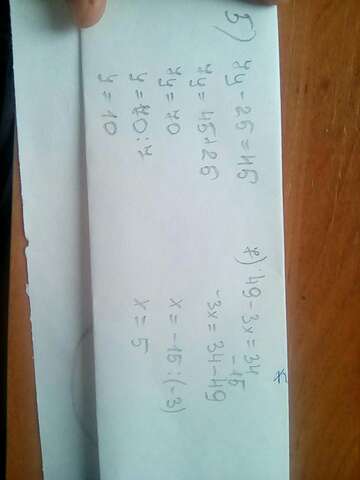 5) 7y - 25 = 45
7y = 45+25
7y = 70
y = 70:7
y = 10
7) 49 - 3x = 34
-15
-3x = 34 - 49
x = -15 : (-3)
x = 5